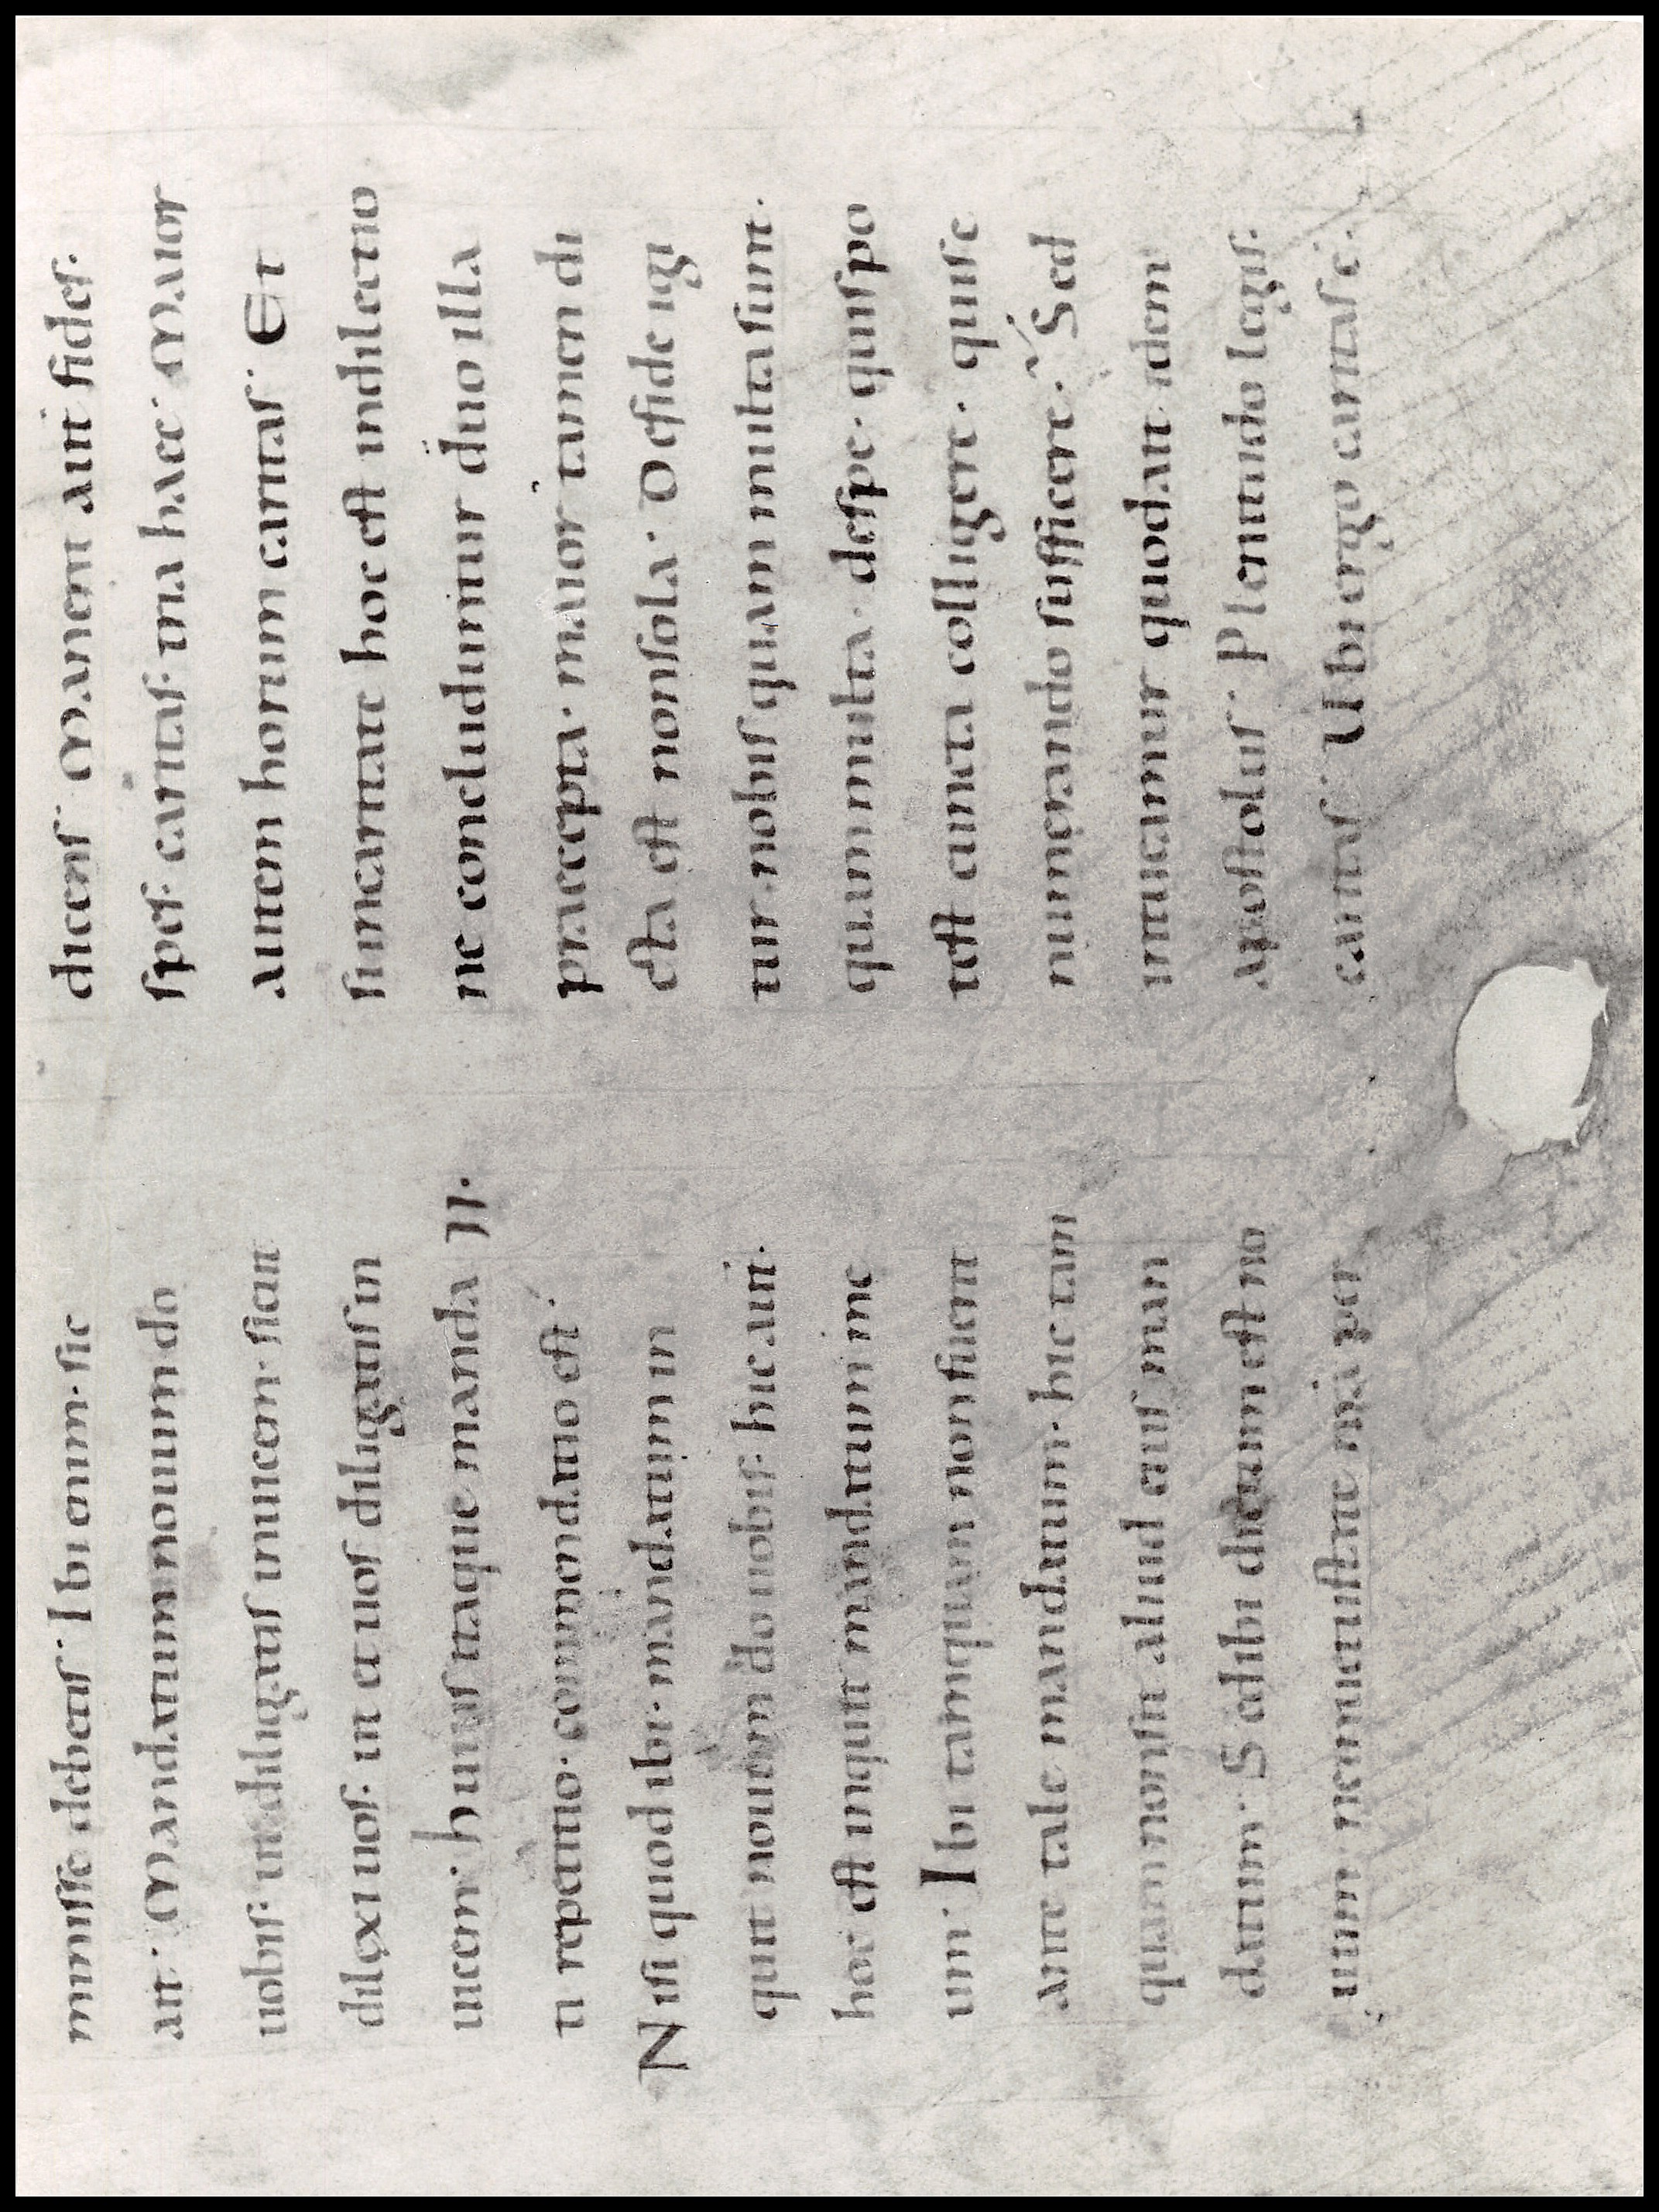 minisse debetis. Ibi enim. sic
ait. Mandatum nouum do
uobis. ut diligatis inuicem. sicut
dilexi uos. ut et uos diligatis in
uicem. huius itaque manda II.
ti repetitio. commendatio est.
Nisi quod ibi. mandatum in
quit nouum do uobis. hic aut.
hoc est inquit mandatum me
um. Ibi tamquam non fuerit
ante tale mandatum. hic tam
quam non sit aliud eius man
datum. Sed ibi dictum est no
uum. ne in uetustate nra per
dicens. Manent aut fides.
spes. caritas. tria haec. Maior
autem horum caritas. Et
si in caritate hoc est in dilectio
ne concluduntur duo illa
praecepta. maior tamen di
cta est non sola. De fide igi
tur nobis quam multa sunt.
quam multa. de spe. quis po
test cuncta colligere. quis e
numerando sufficere. Sed
intueamur quod ait idem
apostolus. Plenitudo legis.
caritas. Ubi ergo caritas e.